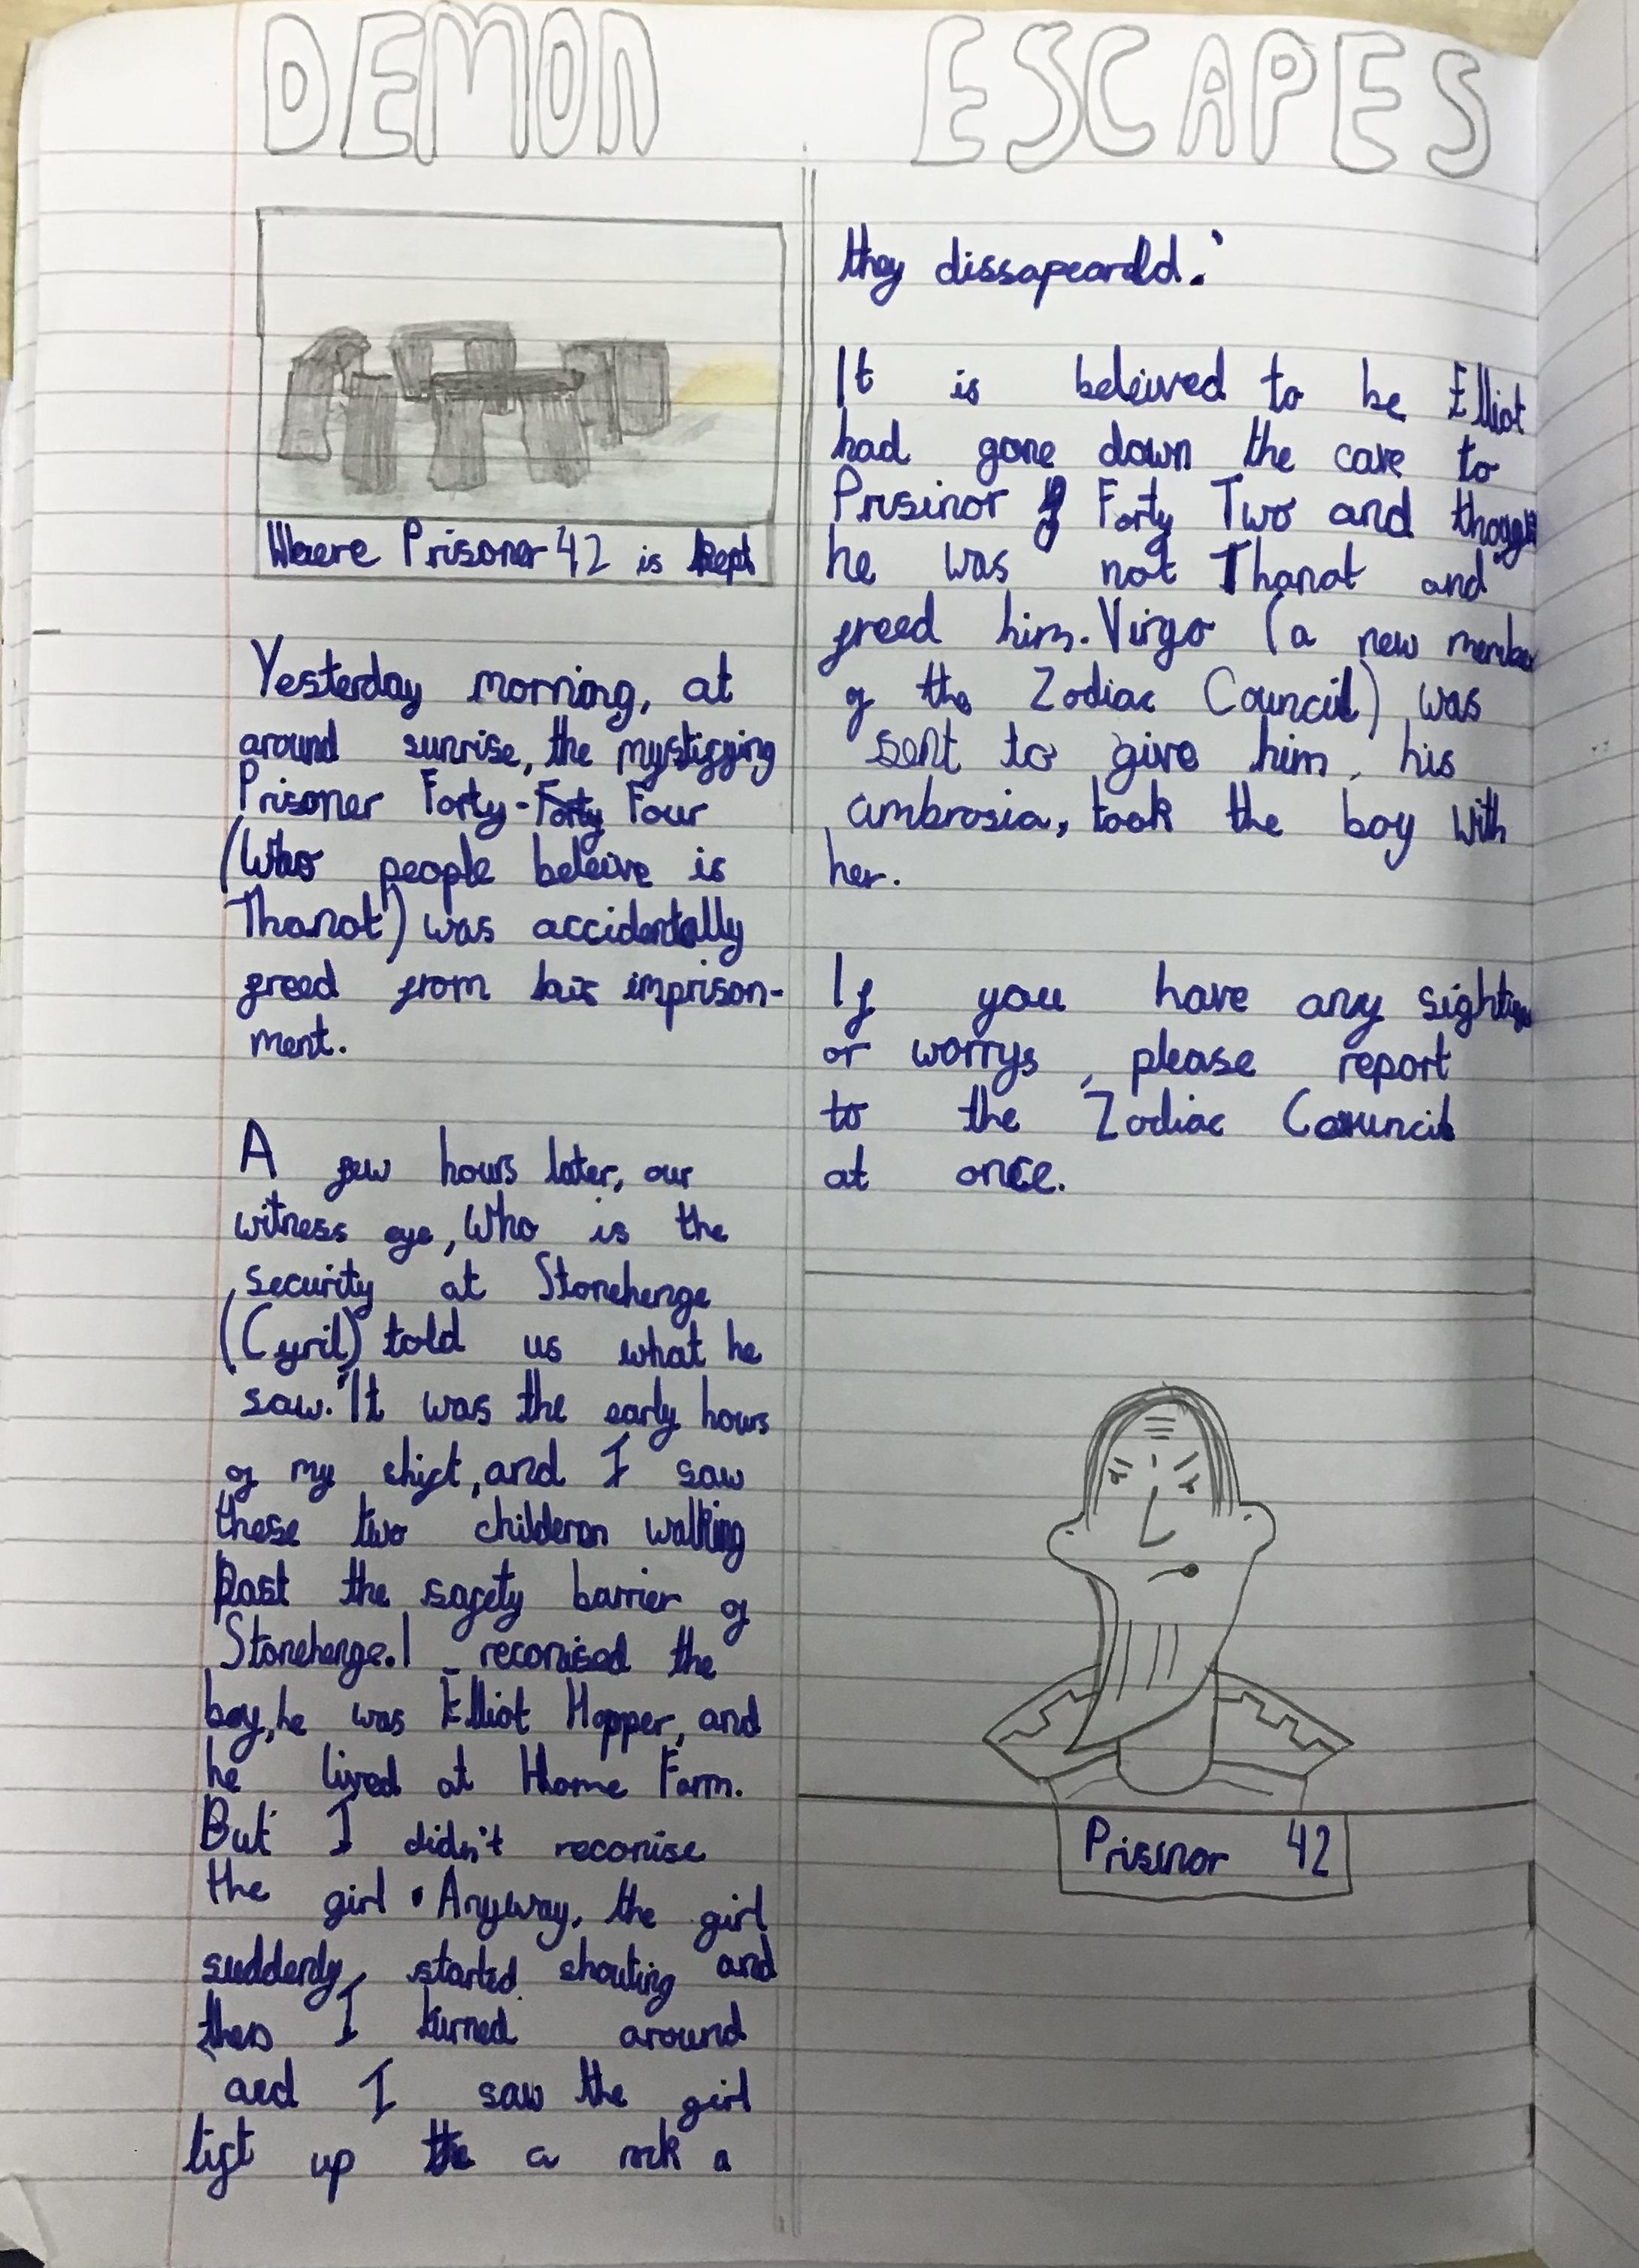 DEMON ESCAPES
Where Prisoner 42 is kept
Yesterday morning, at
around sunrise, the mystifying
Prisoner Forty-Forty Four
(Who people beleive is
Thanat) was accidentally
freed from his imprison-
ment.
A few hours later, our
witness eye, Who is the
security at Stonehenge
(Cyril) told us what he
saw. 'It was the early hours
of my shift, and I saw
these two childeren walking
past the safety barrier of
Stonehenge. I reconised the
boy, he was Elliot Hopper, and
he lived at Home Farm.
But I didn't reconise
the girl. Anyway, the girl
suddenly, started shouting and
then I turned around
and I saw the girl
lift up the a rock a
they dissapeard.'
It is beleived to be Elliot
had gone down the cave to
Prisinor Forty Two and
he was not Thanat and
freed him. Virgo (a new member
of the Zodiac Council) was
sent to give him, his
ambrosia, took the boy with
her.
If you have any
or worrys, please report
to the Zodiac Council
at once.
Prisinor 42